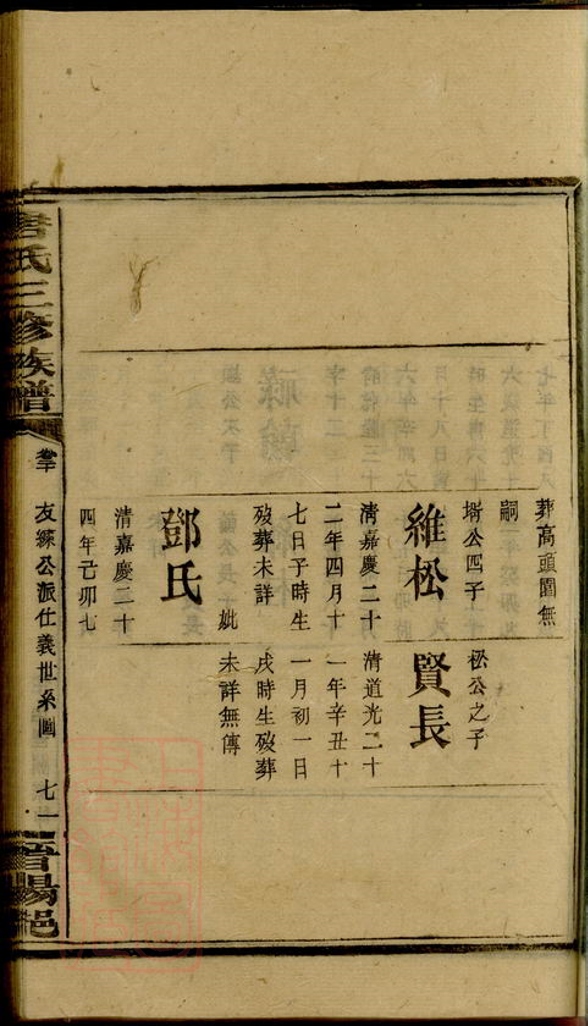 葬高頭園無
嗣
壻公四子
維松
清嘉慶二十
二年四月十
七日子時生
歿葬未詳
妣
鄧氏
清嘉慶二十
四年己卯七
松公之子
賢長
清道光二十
一年辛丑十
一月初一日
戌時生歿葬
未詳無傳
氏三修族譜
公派仕義世系圖
七一
晉陽邑